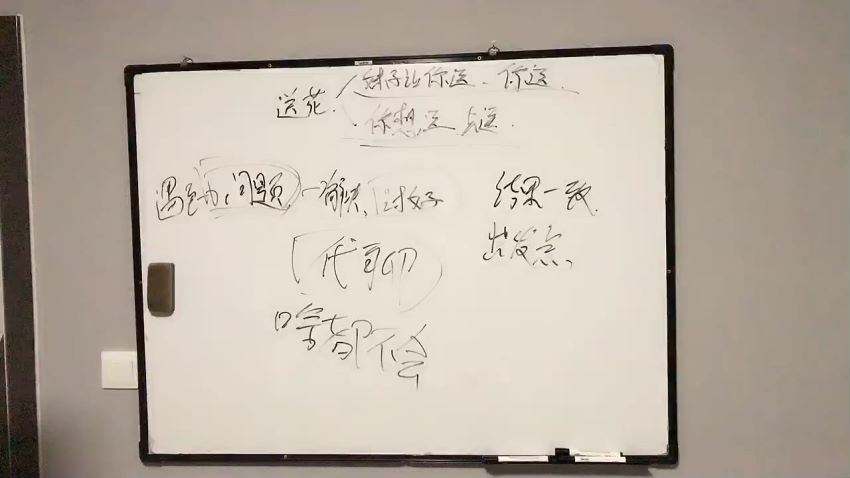 送花 妹子让你送、你送.
你想送 去送.
遇到问题 — 解决、讨好 结果一致.
出发点、
代聊
啥都不会